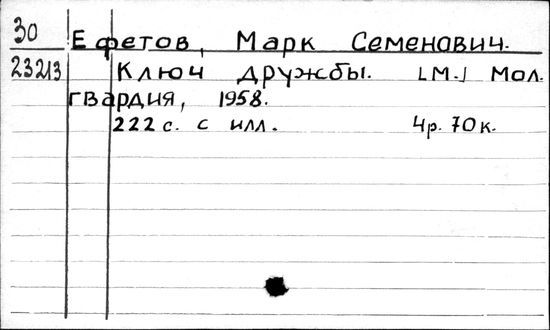 30 Ефетов, Марк Семенович.
23213 Ключ дружбы. [М.] Мол.
гвардия, 1958.
222 с. с илл. 4р. 70к.